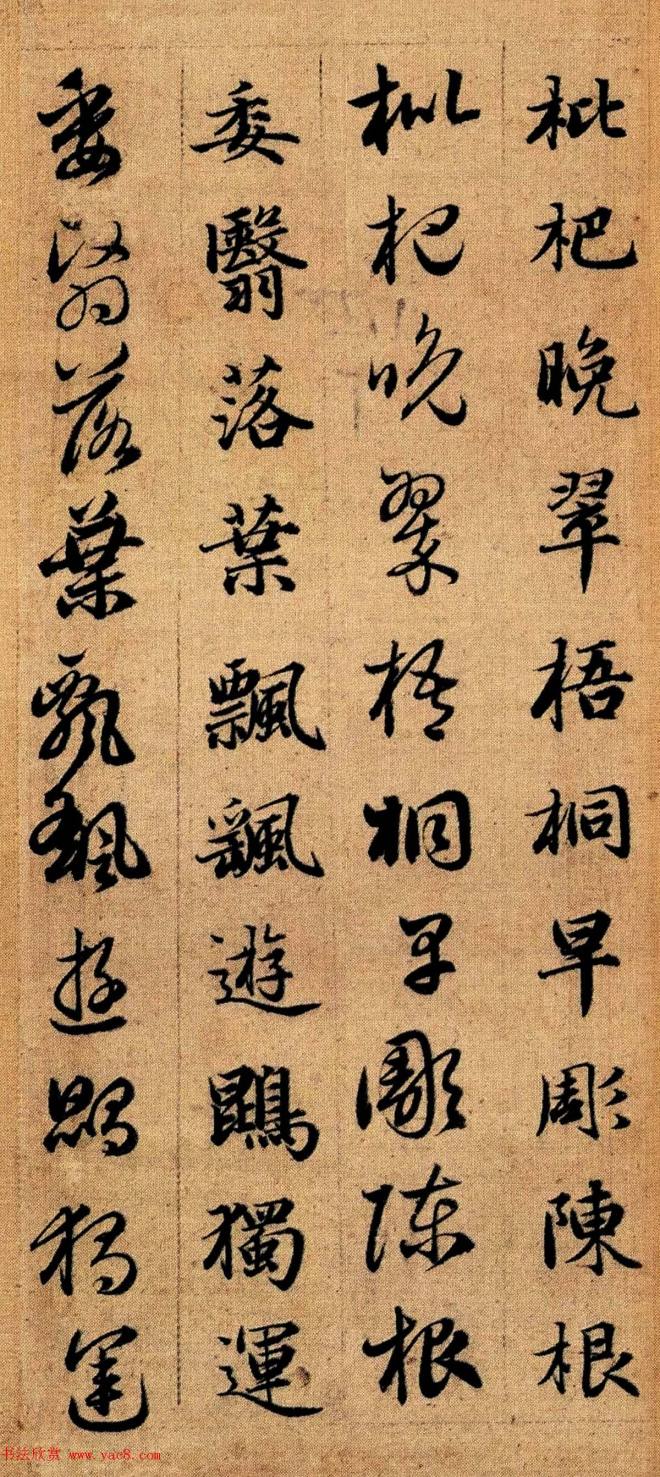 枇杷晚翠梧桐早彫陳根
枇杷晚翠梧桐早彫陳根
委翳落葉飄飖遊鵾獨運
委翳落葉飄飖遊鵾獨運
书法欣赏 www.yac8.com